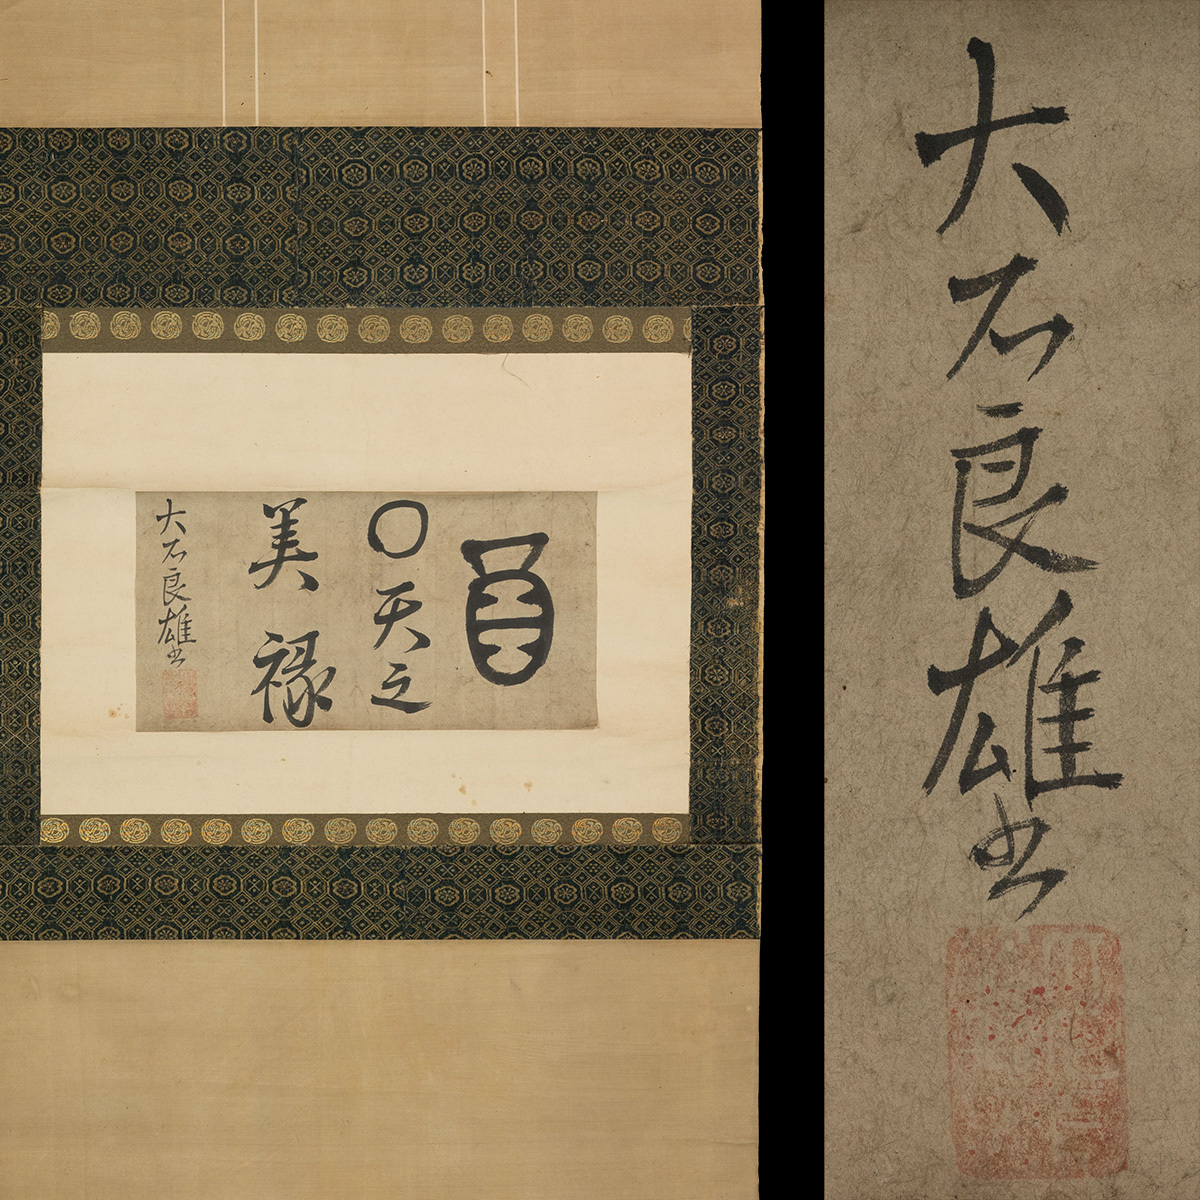 酉
〇天之
美禄
大石良雄書
大石良雄書